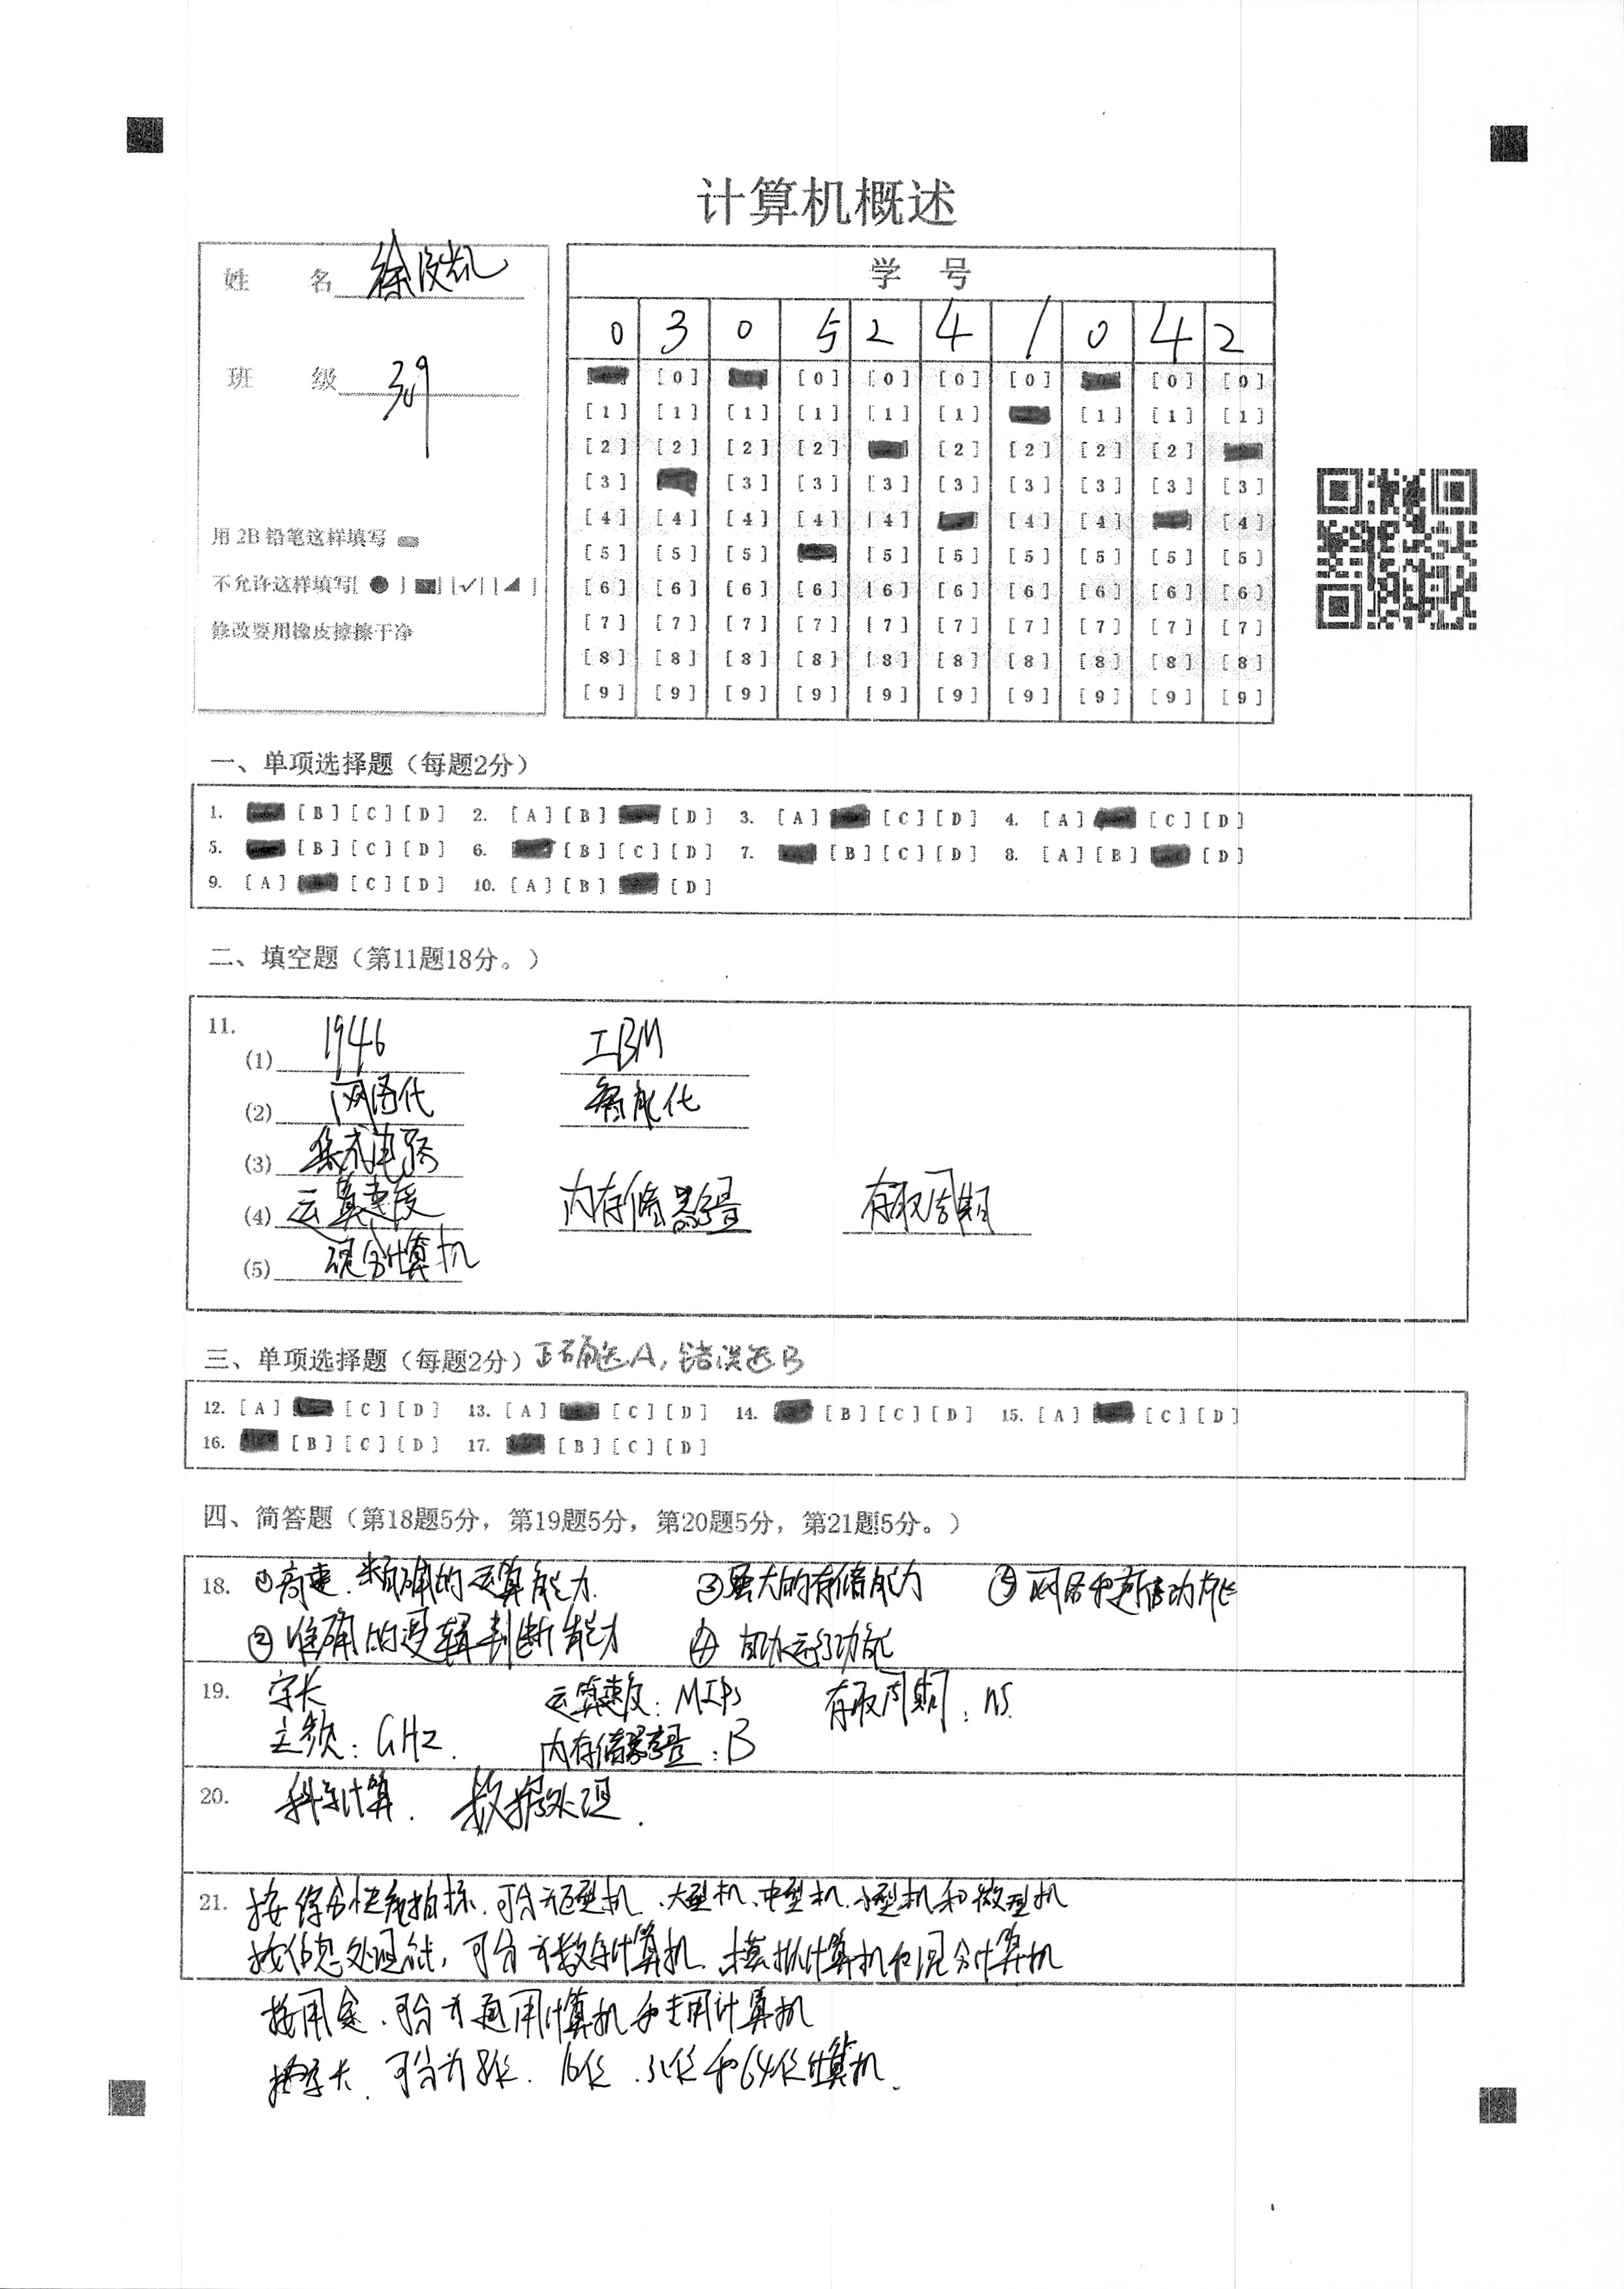 计算机概述
姓 名 徐俊凯
班 级
用 2B 铅笔这样填写
不允许这样填写[ ● ] [■] [✓] [◢ ]
修改要用橡皮擦擦干净
学 号
0 3 0 5 2 4 1 0 4 2
[0] [0] [0] [0] [0] [0] [0]
[1] [1] [1] [1] [1] [1] [1] [1] [1]
[2] [2] [2] [2] [2] [2] [2] [2]
[3] [3] [3] [3] [3] [3] [3] [3] [3]
[4] [4] [4] [4] [4] [4] [4] [4]
[5] [5] [5] [5] [5] [5] [5] [5] [5]
[6] [6] [6] [6] [6] [6] [6] [6] [6] [6]
[7] [7] [7] [7] [7] [7] [7] [7] [7] [7]
[8] [8] [8] [8] [8] [8] [8] [8] [8] [8]
[9] [9] [9] [9] [9] [9] [9] [9] [9] [9]
一、单项选择题（每题2分）
1. [B] [C] [D] 2. [A] [B] [D] 3. [A] [C] [D] 4. [A] [C] [D]
5. [B] [C] [D] 6. [B] [C] [D] 7. [B] [C] [D] 8. [A] [B] [D]
9. [A] [C] [D] 10. [A] [B] [D]
二、填空题（第11题18分。）
11.
(1) 1946 IBM
(2) 网络化 智能化
(3) 集成电路
(4) 运算速度 内存储器容量 存取周期
(5) 混合计算机
三、单项选择题（每题2分） 正确选A，错误选B
12. [A] [C] [D] 13. [A] [C] [D] 14. [B] [C] [D] 15. [A] [C] [D]
16. [B] [C] [D] 17. [B] [C] [D]
四、简答题（第18题5分，第19题5分，第20题5分，第21题5分。）
18. ①高速、精确的运算能力. ③强大的存储能力 ⑤网络和通信功能
②准确的逻辑判断能力 ④自动运行功能
19. 字长 运算速度：MIPs 存取周期：ns.
主频：GHz. 内存储器容量：B
20. 科学计算. 数据处理.
21. 按综合性能指标、可分为巨型机、大型机、中型机、小型机和微型机
按信息处理方式，可分为数字计算机、模拟计算机和混合计算机
按用途、可分为通用计算机和专用计算机
按字长、可分为8位、16位、32位和64位计算机.